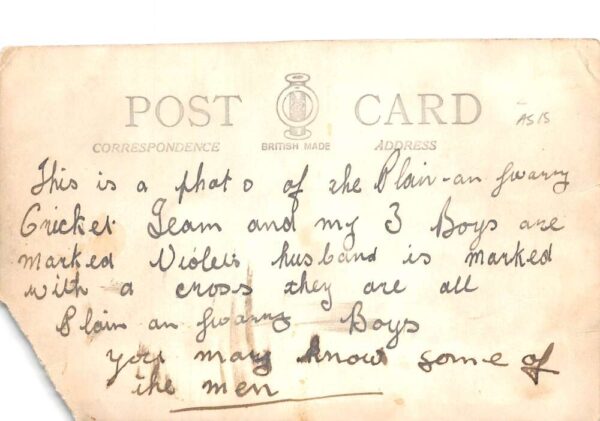 POST CARD
AS15
CORRESPONDENCE BRITISH MADE ADDRESS
This is a phat o of the Plain-an Gwarry
Cricket Team and my 3 Boys are
marked Violets husband is marked
with a cross they are all
Plain an Gwarry Boys
you may know some of
the men